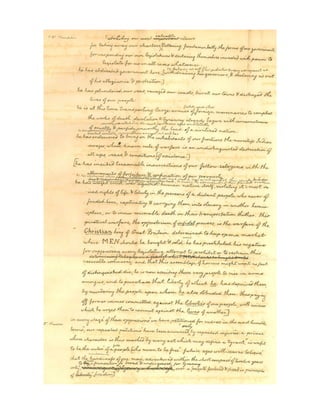 abolishing our most valuable laws
for taking away our charters, & altering fundamentally the forms of our governments
for suspending our own legislatures & declaring themselves invested with power to
legislate for us in all cases whatsoever
he has abdicated government here, [withdrawing his governors, & declaring us out
of his allegiance & protection:]
he has plundered our seas, ravaged our coasts, burnt our towns & destroyed the
lives of our people:
he is at this time transporting large armies of foreign mercenaries to compleat
the works of death, desolation & tyranny already begun with circumstances
of cruelty & perfidy unworthy the head of a civilized nation:
he has endeavored to bring on the inhabitants of our frontiers the merciless Indian
savages, whose known rule of warfare is an undistinguished destruction of
all ages, sexes, & conditions [of existence.]
[he has incited treasonable insurrections of our fellow-citizens, with the
allurements of forfeiture & confiscation of our property.
he has waged cruel war against human nature itself, violating it's most sa-
-cred rights of life & liberty in the persons of a distant people who never of-
fended him, captivating & carrying them into slavery in another hemi-
sphere, or to incur miserable death in their transportation thither. this
piratical warfare, the opprobrium of infidel powers, is the warfare of the
Christian king of Great Britain. determined to keep open a market
where MEN should be bought & sold, he has prostituted his negative
for suppressing every legislative attempt to prohibit or to restrain this
execrable commerce: and that this assemblage of horrors might want no fact
of distinguished die, he is now exciting those very people to rise in arms
among us, and to purchase that liberty of which he has deprived them,
by murdering the people upon whom he also obtruded them: thus paying
off former crimes committed against the liberties of one people, with crimes
which he urges them to commit against the lives of another.]
in every stage of these oppressions we have petitioned for redress in the most humble
terms; our repeated petitions have been answered only by repeated injuries. a prince
whose character is thus marked by every act which may define a tyrant, is unfit
to be the ruler of a people [who mean to be free. future ages will scarce believe
that the hardiness of one man, adventured within the short compass of twelve years